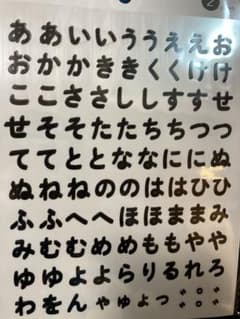 ああいいううええお
おかかききくくけけ
ここささししすすせ
せそそたたちちつつ
ててととななににぬ
ぬねねののははひひ
ふふへへほほままみ
みむむめめももやや
ゆゆよよらりるれろ
わをんゃゅょっ゛゜゛